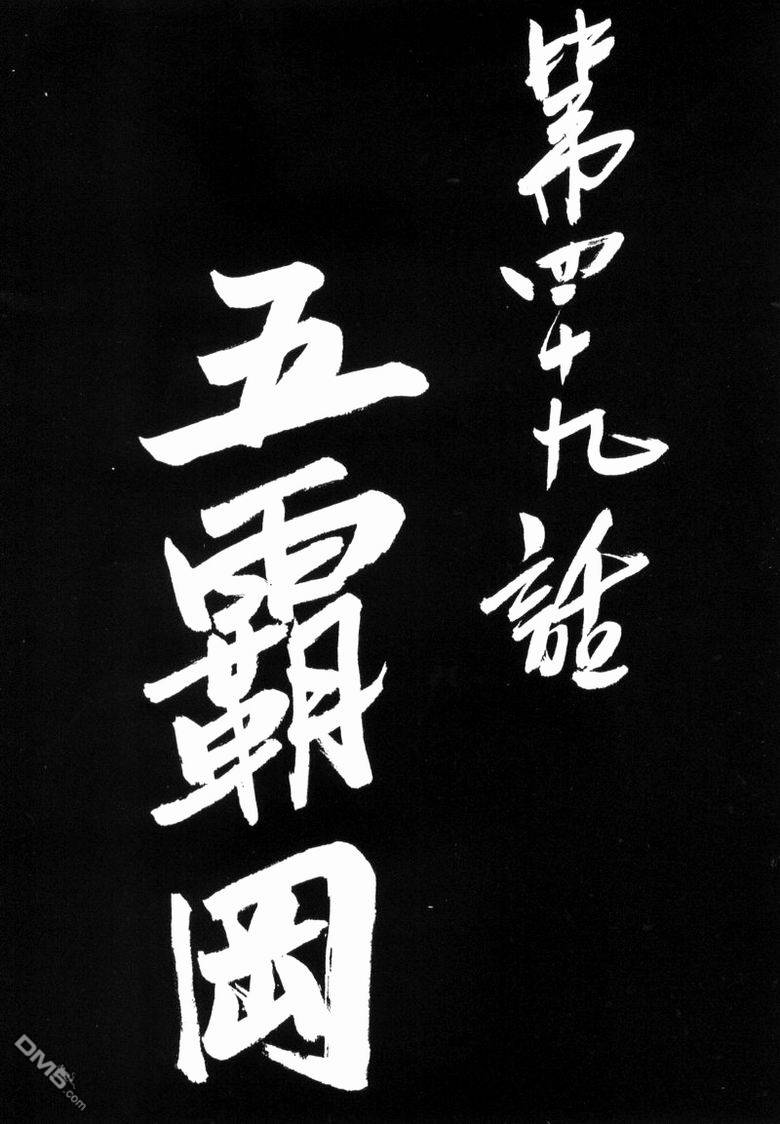 第四十九話
五霸岡
DM5.com